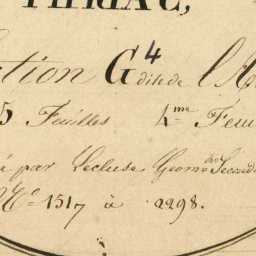 THRIAC,
ction G4 dite de l'A
5 Feuilles 4me Feui
é par Lecluse Geomre Second
Nos 1517 à 2298.